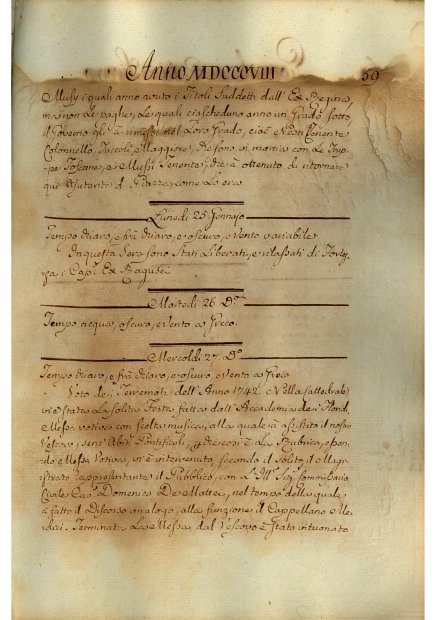 Anno MDCCCVIII 59
Mussi i quali anno avuto i Titoli suddetti dall' Ex Regina,
ma non le paghe, le quali ciascheduno anno un Grado sotto,
il Governo gli à rimessi nel loro Grado, cioè Neri Tenente
Colonnello, Puccoli Maggiore, che sono in marcia con le Trup-
pe Toscane, e Mussi Tenente, che à ottenuto di ritornare
qui Ajutante di Piazza, come lo era
Lunedì 25 Gennajo
Tempo chiaro, e frà chiaro, e oscuro, e vento variabile
In questa sera sono stati liberati, e rilassati di Fortez-
za i Cap.i Ex Ragusei
Martedì 26 D.o
Tempo acqua, oscuro, e vento a Greco.
Mercoldì 27. D.o
Tempo chiaro, e frà chiaro, e oscuro, e vento a Greco
Voto de i Terremoti dell' Anno 1742. Nella Cattedrale
vi è stata la solita Festa fatta dall' Accademia de i
Messa votiva con scelta musica, alla quale à assistito il nostro
Vescovo, senz' Abiti Pontificali, che così è la Rubrica, essen-
do Messa Votiva, vi è intervenuto, secondo il solito, il Magi-
strato rappresentante il Pubblico, con l' Ill. Sig. Commissario
Civile Cav. Domenico De Matteis, nel tempo della quale
à fatto il Discorso analogo, alla funzione il Cappellano Me-
dici. Terminata la Messa dal Vescovo è stato intuonato